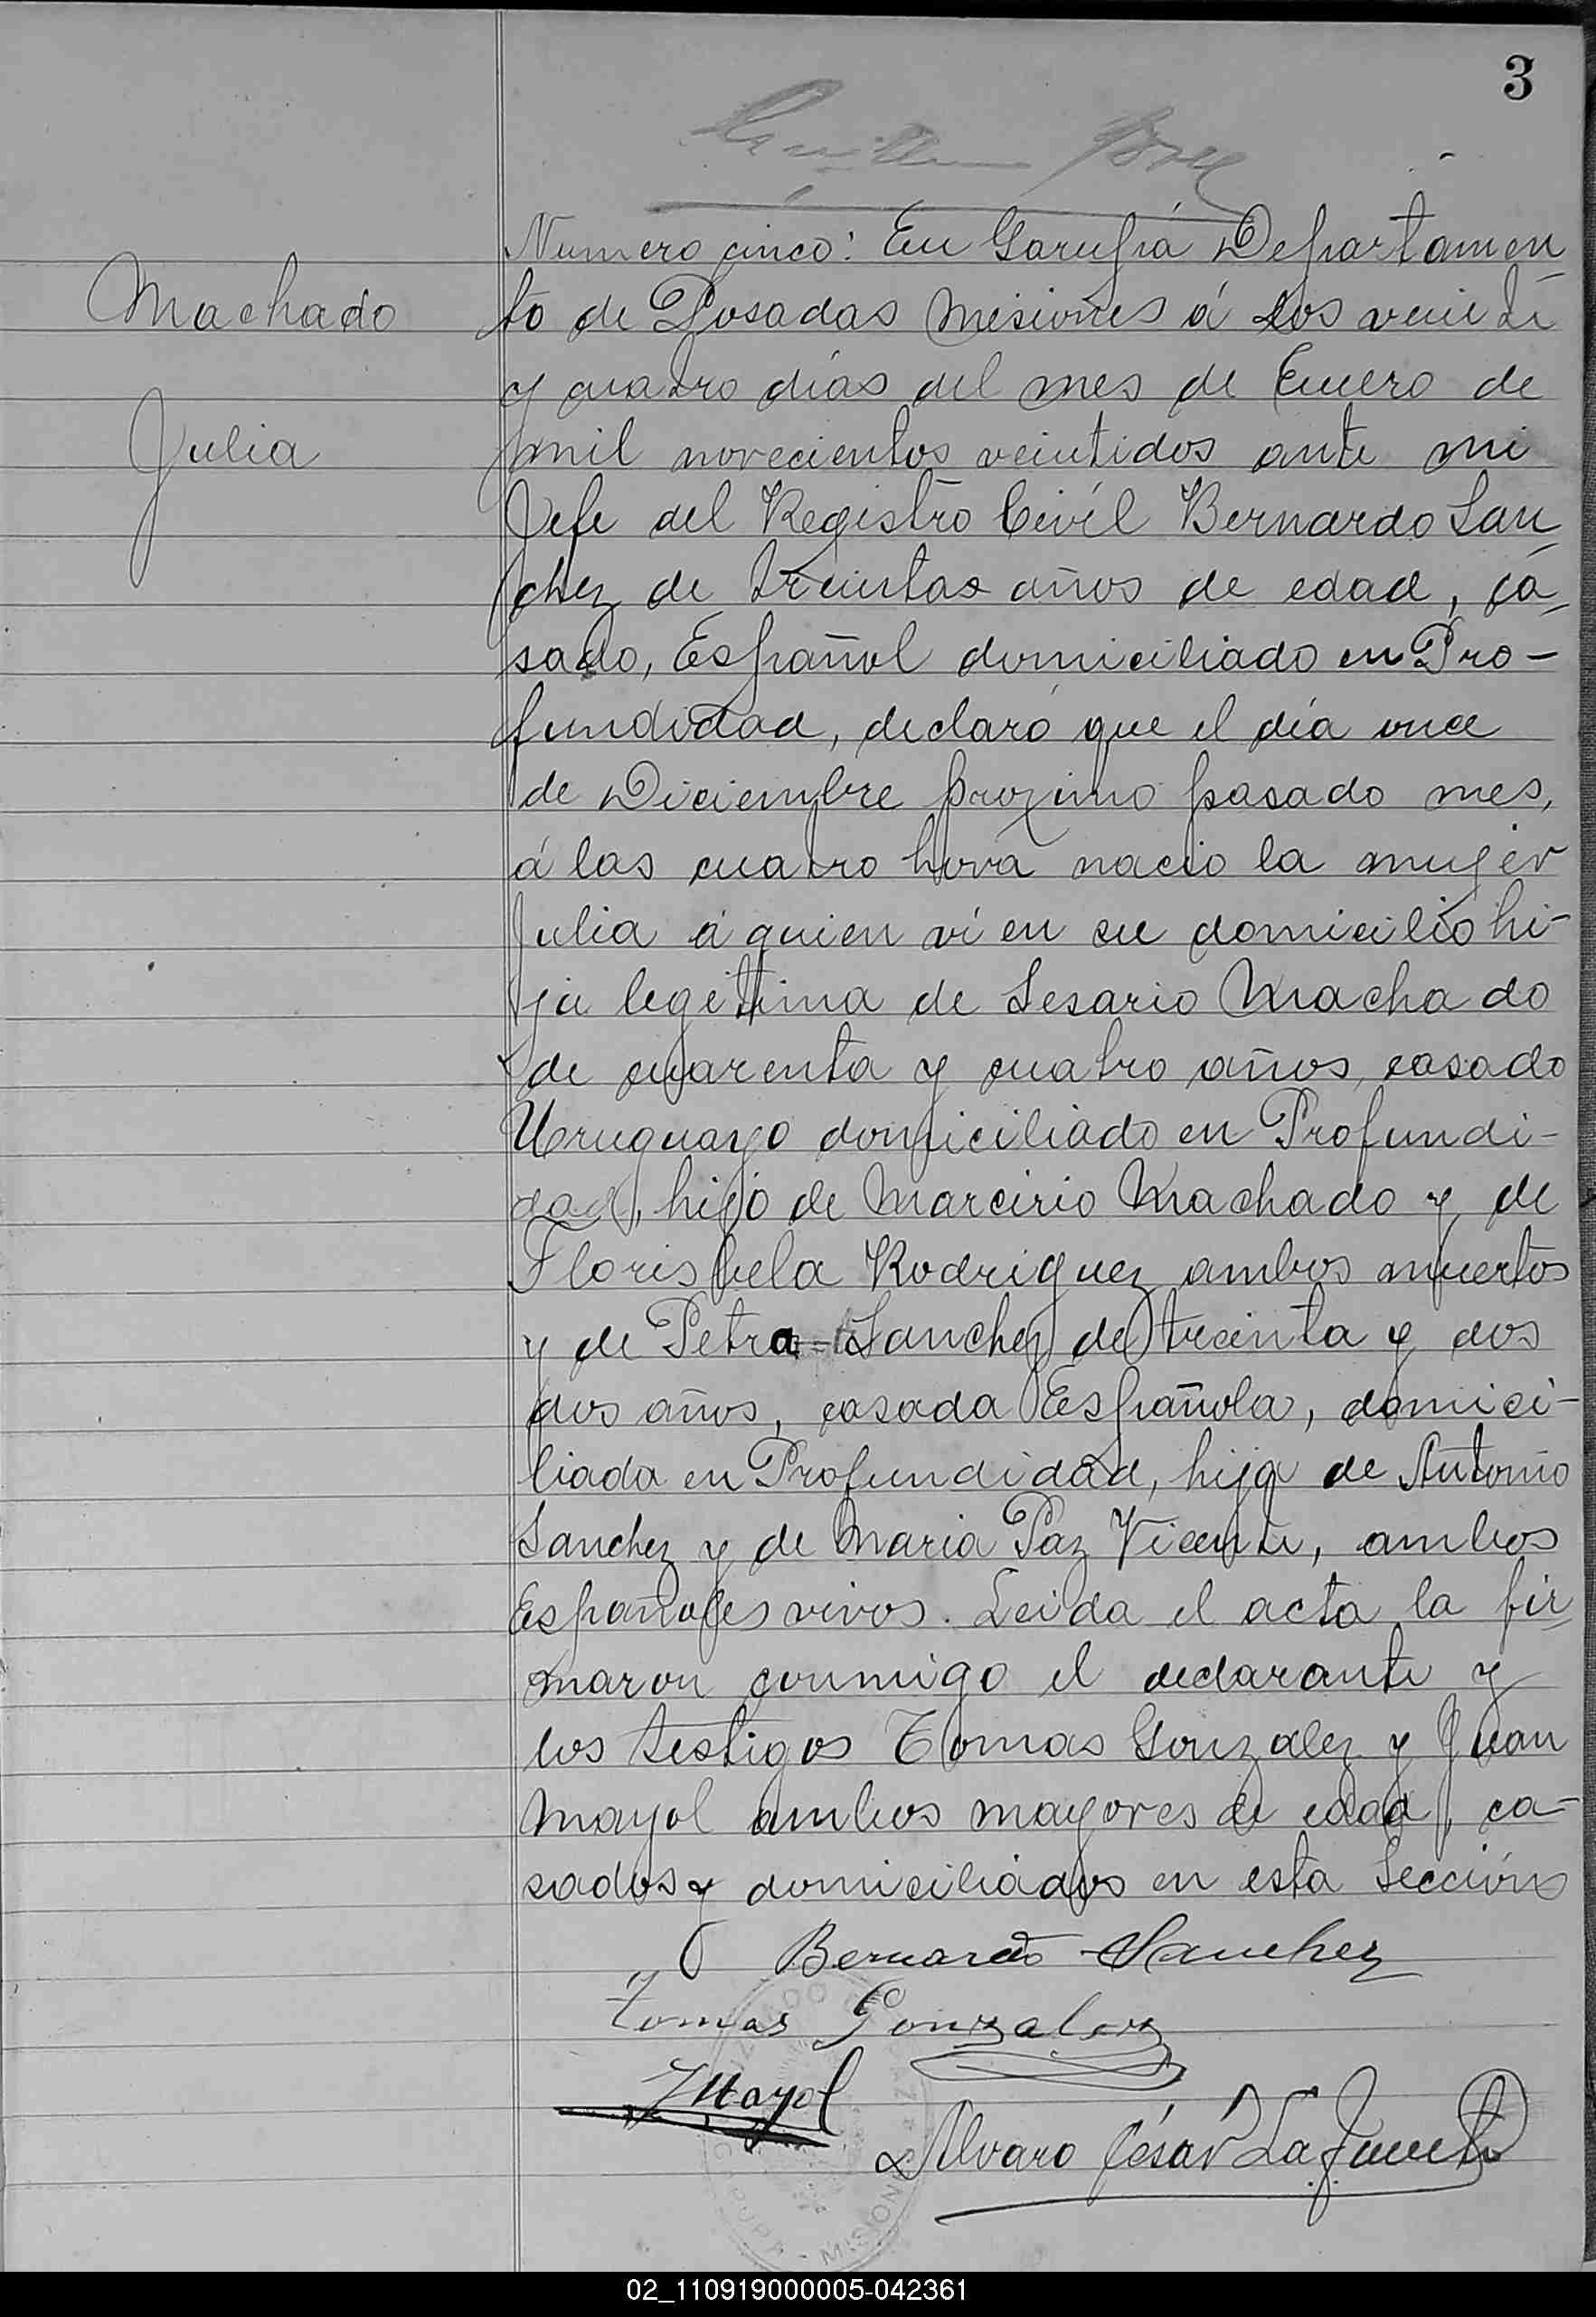 3
Machado
Julia
Numero cinco: En Garupá Departamen
to de Posadas Misiones á los veinti
y cuatro días del mes de Enero de
mil novecientos veintidos ante mi
Jefe del Registro Civíl Bernardo San
chez de treintas años de edad, ca-
sado, Español domiciliado en Pro-
fundidad, declaró que el día once
de Diciembre proximo pasado mes,
á las cuatro hora nació la mujer
Julia á quien ví en su domicilio hi-
ja legitima de Sesario Machado
de cuarenta y cuatro años, casado
Uruguayo domiciliado en Profundi-
dad, hijo de Marcirio Machado y de
Florisbela Rodriguez ambos muertos
y de Petra Sanchez de treinta y dos
dos años, casada Española, domici-
liada en Profundidad, hija de Antonio
Sanchez y de Maria Paz Vicente, ambos
Españoles vivos. Leida el acta la fir-
maron conmigo el declarante y
los testigos Tomas Gonzalez y Juan
Mayol ambos mayores de edad, ca-
sados y domiciliados en esta Sección
Bernardo Sanchez
Tomas Gonzalez
J Mayol
Alvaro César Lafuente
MISIONES
02_110919000005-042361